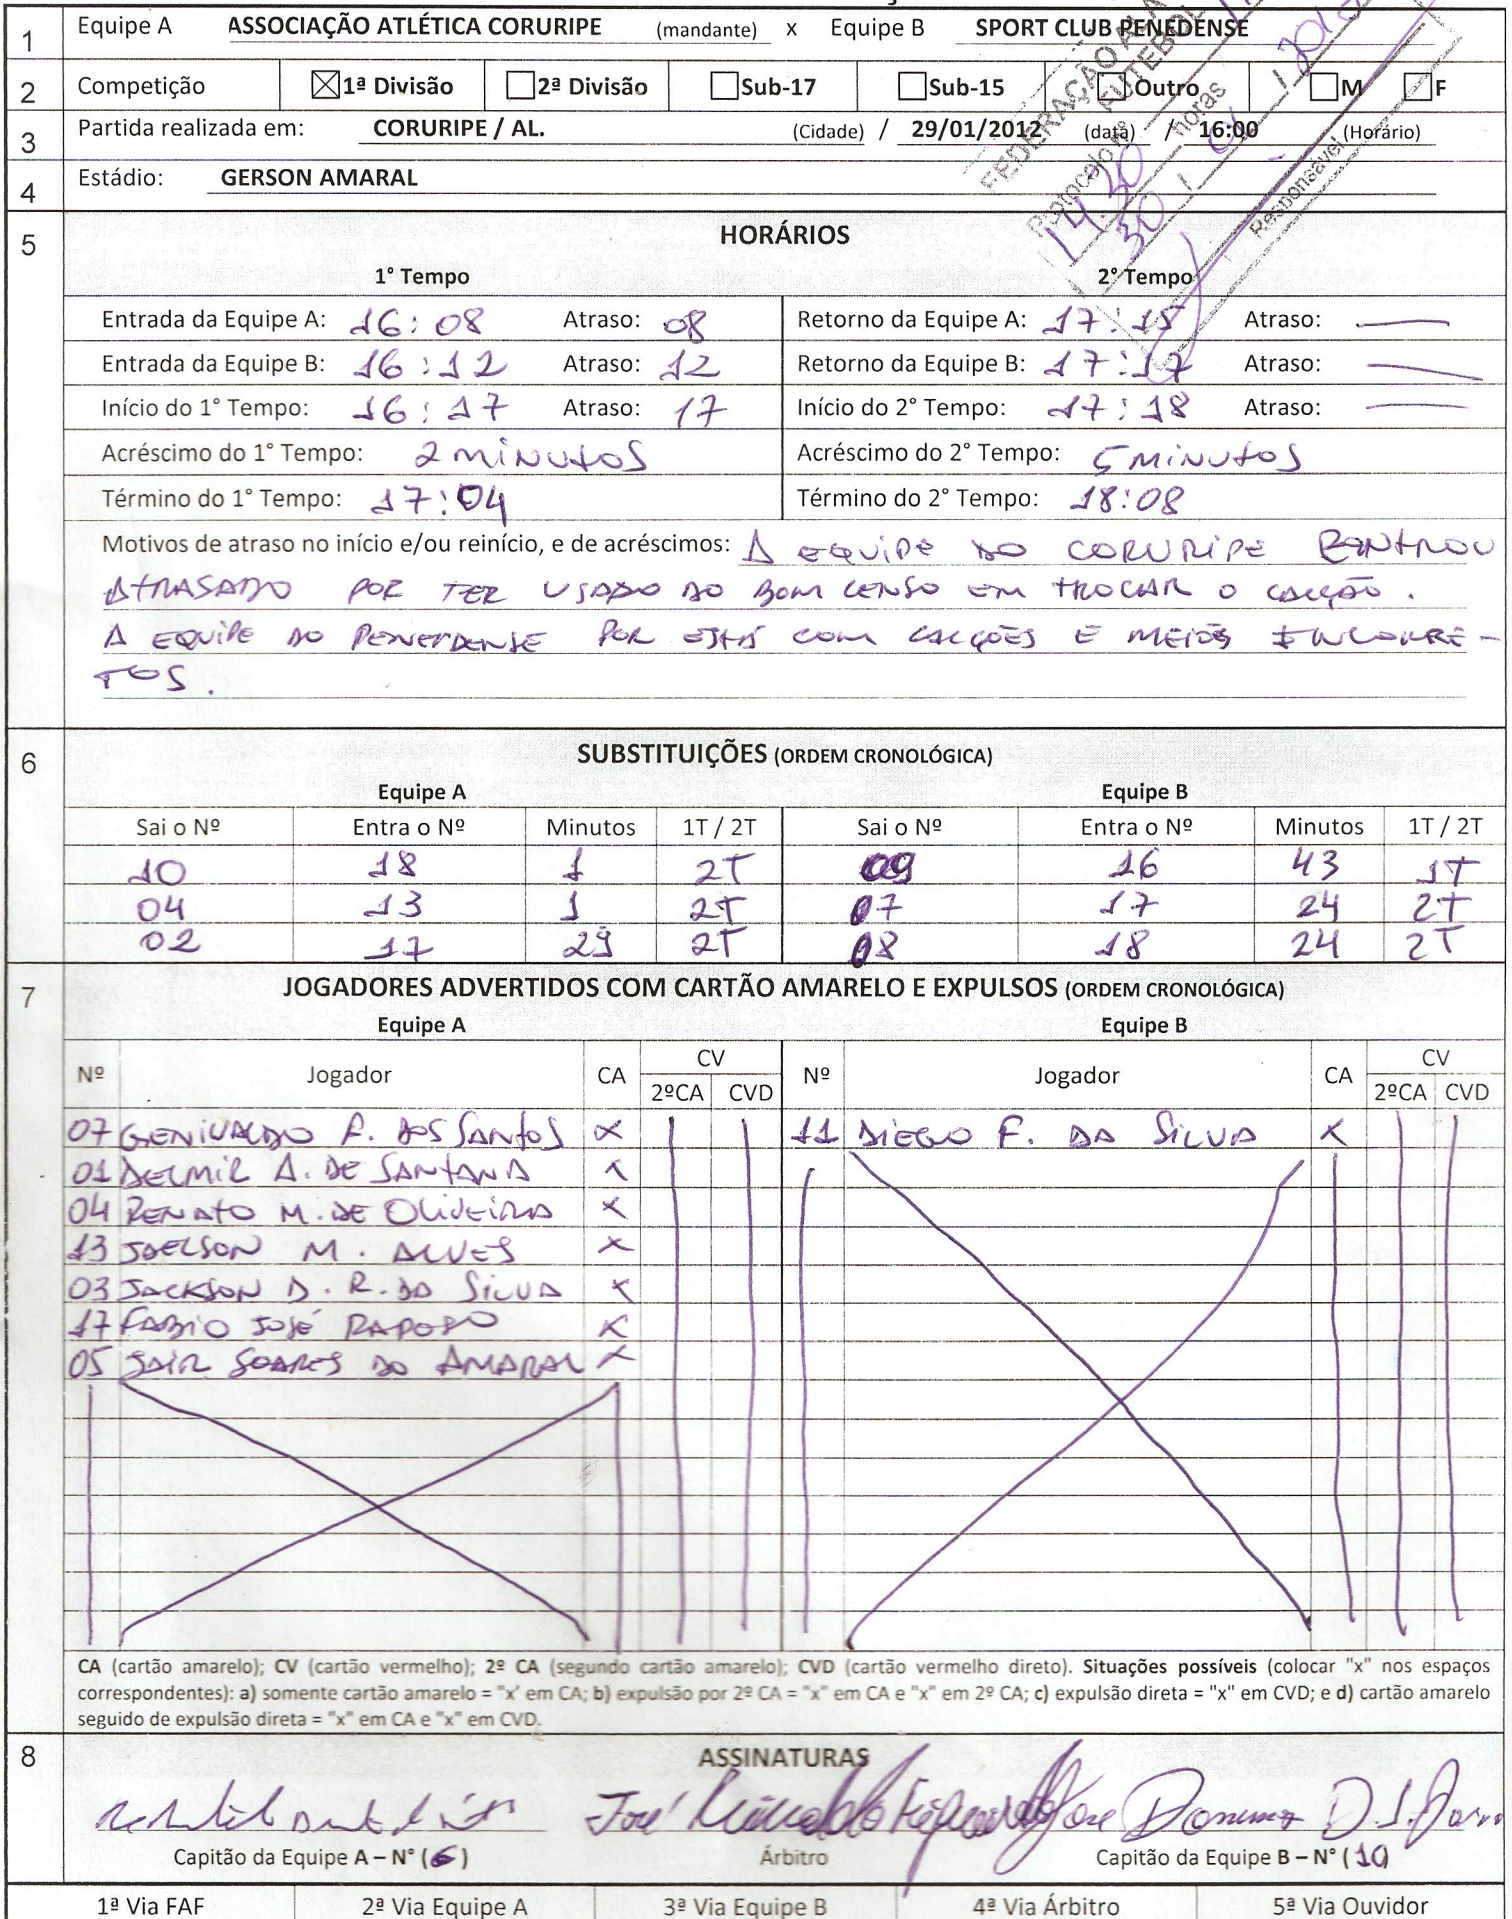 1 Equipe A ASSOCIAÇÃO ATLÉTICA CORURIPE (mandante) x Equipe B SPORT CLUB PENEDENSE
2 Competição ☒1ª Divisão ☐2ª Divisão ☐Sub-17 ☐Sub-15 ☐Outro ☐M ☐F
3 Partida realizada em: CORURIPE / AL. (Cidade) / 29/01/2012 (data) / 16:00 (Horário)
4 Estádio: GERSON AMARAL
FEDERAÇÃO
FUTEBOL
Protocolo Nº
14:30 horas
30 / 01 / 2012
Responsável
5 HORÁRIOS
1° Tempo 2° Tempo
Entrada da Equipe A: 16:08 Atraso: 08 Retorno da Equipe A: 17:15 Atraso:
Entrada da Equipe B: 16:12 Atraso: 12 Retorno da Equipe B: 17:17 Atraso:
Início do 1° Tempo: 16:17 Atraso: 17 Início do 2° Tempo: 17:18 Atraso:
Acréscimo do 1° Tempo: 2 minutos Acréscimo do 2° Tempo: 5 minutos
Término do 1° Tempo: 17:04 Término do 2° Tempo: 18:08
Motivos de atraso no início e/ou reinício, e de acréscimos: A EQUIPE DO CORURIPE
ATRASADO POR TER USADO DO BOM CENSO EM TROCAR O CALÇÃO.
A EQUIPE DO PENEDENSE POR ESTÁ COM CALÇÕES E MEIÕES INCORRE-
TOS.
6 SUBSTITUIÇÕES (ORDEM CRONOLÓGICA)
Equipe A Equipe B
Sai o Nº Entra o Nº Minutos 1T / 2T Sai o Nº Entra o Nº Minutos 1T / 2T
10 18 1 2T 09 16 43 1T
04 13 1 2T 07 17 24 2T
02 17 29 2T 08 18 24 2T
7 JOGADORES ADVERTIDOS COM CARTÃO AMARELO E EXPULSOS (ORDEM CRONOLÓGICA)
Equipe A Equipe B
Nº Jogador CA CV 2ºCA CVD Nº Jogador CA CV 2ºCA CVD
07 GENIVALDO F. DOS SANTOS X 11 DIEGO F. DA SILVA X
01 DELMIR A. DE SANTANA X
04 RENATO M. DE OLIVEIRA X
13 JAELSON M. ALVES X
03 JACKSON D. R. DA SILVA X
17 FABIO JOSÉ RAPOSO X
05 JAIR SOARES DO AMARAL X
CA (cartão amarelo); CV (cartão vermelho); 2º CA (segundo cartão amarelo); CVD (cartão vermelho direto). Situações possíveis (colocar "x" nos espaços
correspondentes): a) somente cartão amarelo = "x' em CA; b) expulsão por 2º CA = "x" em CA e "x" em 2º CA; c) expulsão direta = "x" em CVD; e d) cartão amarelo
seguido de expulsão direta = "x" em CA e "x" em CVD.
8 ASSINATURAS
José
Capitão da Equipe A – N° (6) Árbitro Capitão da Equipe B – N° (10)
1ª Via FAF 2ª Via Equipe A 3ª Via Equipe B 4ª Via Árbitro 5ª Via Ouvidor